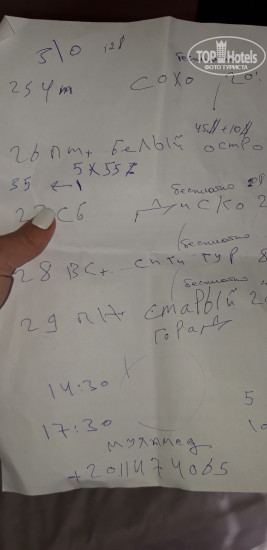 TOPHotels
ФОТО ТУРИСТА
З/О 12$
бесп
25 чт СОХО 20:
45$/+10$
26 пт. Белый остро
5 X 55
35 ← 1
бесплатно
27 СБ Диско 2
бесплатно
28 ВС. сити тур 8
бесплатно
29 ПН. Старый 20
город
14:30 5
17:30 10
мухамед
+2011474065